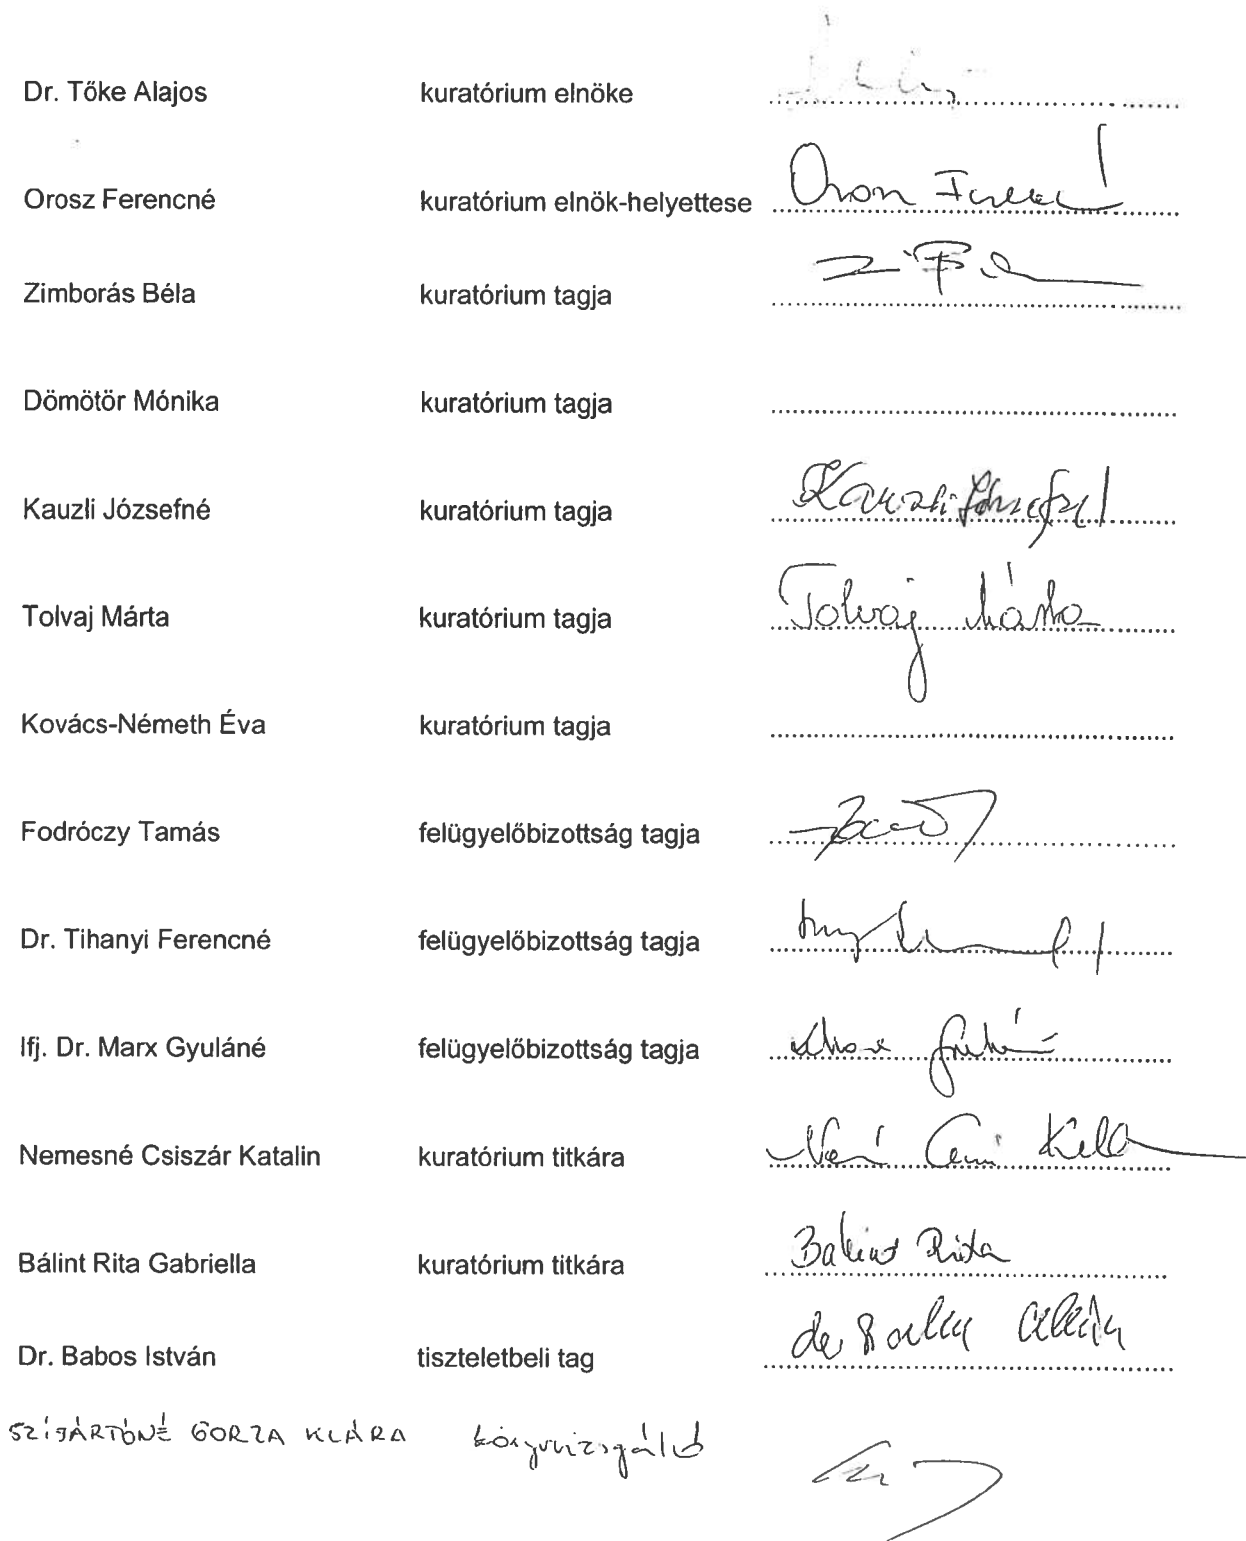 Dr. Tőke Alajos kuratórium elnöke
Orosz Ferencné kuratórium elnök-helyettese
Zimborás Béla kuratórium tagja
Dömötör Mónika kuratórium tagja
Kauzli Józsefné kuratórium tagja Kauzli Józsefné
Tolvaj Márta kuratórium tagja Tolvaj Márta
Kovács-Németh Éva kuratórium tagja
Fodróczy Tamás felügyelőbizottság tagja
Dr. Tihanyi Ferencné felügyelőbizottság tagja
Ifj. Dr. Marx Gyuláné felügyelőbizottság tagja
Nemesné Csiszár Katalin kuratórium titkára
Bálint Rita Gabriella kuratórium titkára Bálint Rita
Dr. Babos István tiszteletbeli tag
SZÍJÁRTÓNÉ GORZA KLÁRA könyvvizsgáló